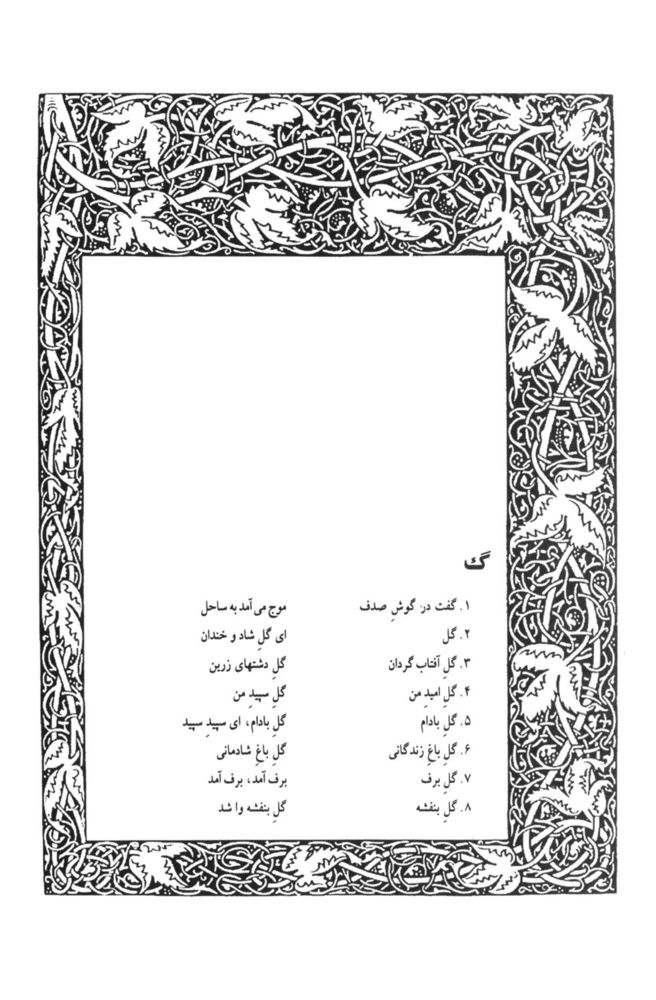 گ
۱. گفت در گوشِ صدف موج می‌آمد به ساحل
۲. گل ای گلِ شاد و خندان
۳. گلِ آفتاب گردان گلِ دشتهای زرین
۴. گلِ امیدِ من گلِ سپیدِ من
۵. گلِ بادام گلِ بادام، ای سپیدِ سپید
۶. گلِ باغِ زندگانی گلِ باغِ شادمانی
۷. گلِ برف برف آمد، برف آمد
۸. گلِ بنفشه گلِ بنفشه وا شد